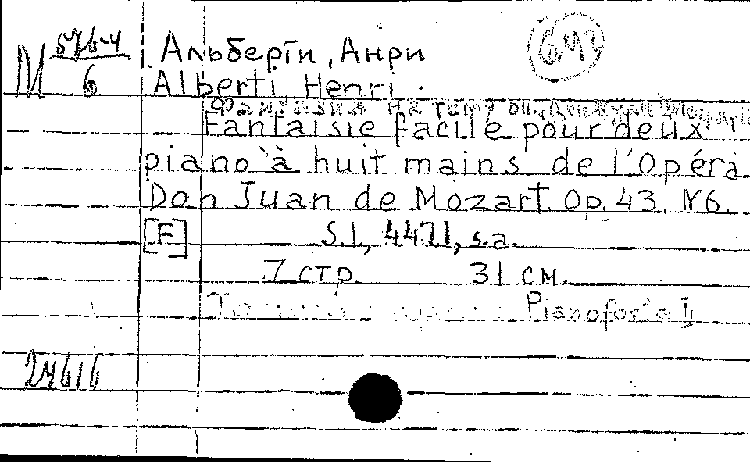 М 576-4 / 6
Альберти, Анри
Alberti, Henri.
Фантазия на тему оп.
Fantaisie facile pour deux
piano à huit mains de l'Opéra
Don Juan de Mozart Op. 43. N6.
[F] S.l., 4471, s.a.
7 стр. 31 см.
Pianoforte II
27616